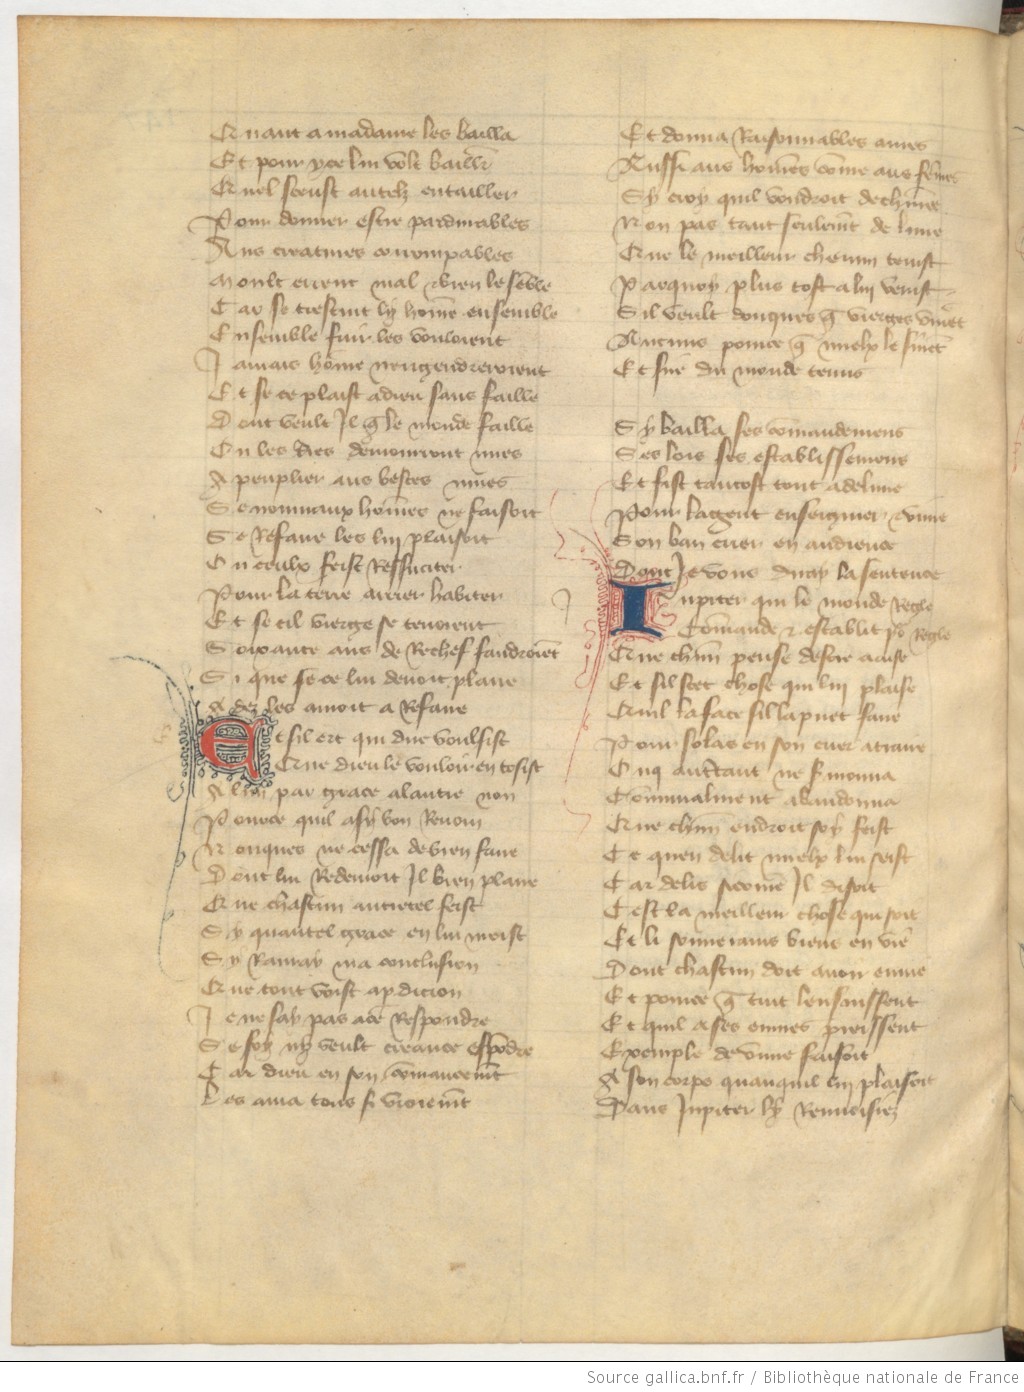 Quant a ma dame les bailla
Et pour yce lui volt baillr
Quel sceust autelz entailler
Pour donner estre pardurables
Aus creatures corrompables
Moult errent mal & bien le sēble
Car se trestuit ly hōme ensemble
Ensemble fuir les vouloient
Jamais hōme nengendreroient
Et se ce plaist a dieu sans faille
Dont veult Il q̄ le monde faille
En les tres demourront nues
A peuplier aus bestes nues
Se nouuaux hōmes ne faisoit
Se Refaire les lui plaisoit
Ou ceulx feist Ressuciter
Pour la terre arrier habiter
Et se cil vierge se tenoient
Soixante ans de Rechef faudroiēt
Si que se ce lui deuoit plaire
A des les auroit a Refaire
Et sil ert qui dire voulsist
Que dieu le vouloir en tosist
A lun par grace a lautre non
Pource quil a sy bon Renom
Nonques ne cessa de bien faire
Dont lui Redeuroit Il bien plaire
Que chascun autretel feist
Sy quautel grace en lui meist
Sy Rauray ma conclusion
Que tout voist a pdicion
Je ne say pas a ce Respondre
Se foy ny veult creance espōdre
Car dieu en son cōmancemēt
Les ama tous si vniemēt
Et donna Raisonnables ames
Aussi aus hōmes cōme aus fēmes
Sy croy quil vouldroit de chūne
Non pas tant seulemēt de lune
Que le meilleur chemin tenist
Parquoy plus tost a lui venist
Sil veult donques q̄ vierges viuēt
Aucuns pource q̄ mielx le siuēt
Et siē du monde tenus
Sy bailla ses cōmandemens
Ses lois ses establissemens
Et fist tantost tout a deliure
Pour la gent enseigner viure
Son ban crier en audience
Dont Je vous diray la sentence
Iupiter qui le monde Regle
Cōmande & establit pō Regle
Que chūn pense destre aaise
Et sil scet chose qui lui plaise
Quil la face sil la puet faire
Pour solas en son cuer atraire
Onq autrāt ne sermonna
Communalment abandonna
Que chūn endroit soy feist
Ce quen delit mielx lui seist
Car delis sicomē Il disoit
Cest la meilleur chose qui soit
Et li souuerains biens en vie
Dont chascun doit auoir enuie
Et pource q̄ tuit lensuissent
Et quil a ses euures preissent
Exemple de viure faisoit
A son corps quanquil lui plaisoit
Dans Jupiter ly Renuoisiez